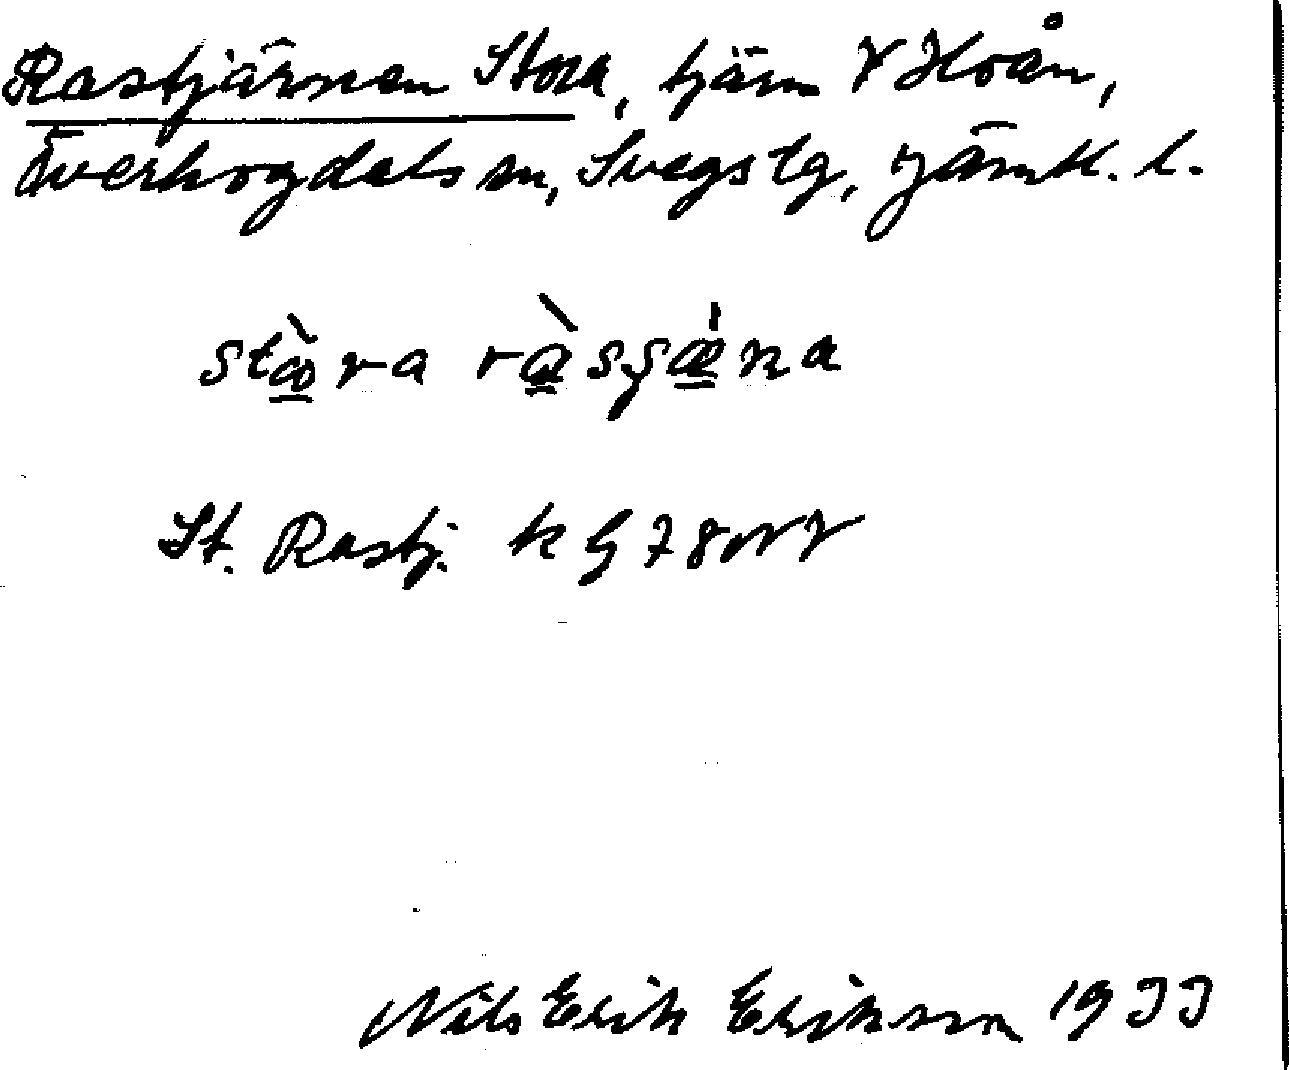 Rastjärnen Stora, tjärn V Hoån,
Överhogdals sn, Svegs tg, Jämtl. l.
stɷ̀ra ràsjǽna
St. Rastj. k G 78 NV
Nils Erik Erikson 1933